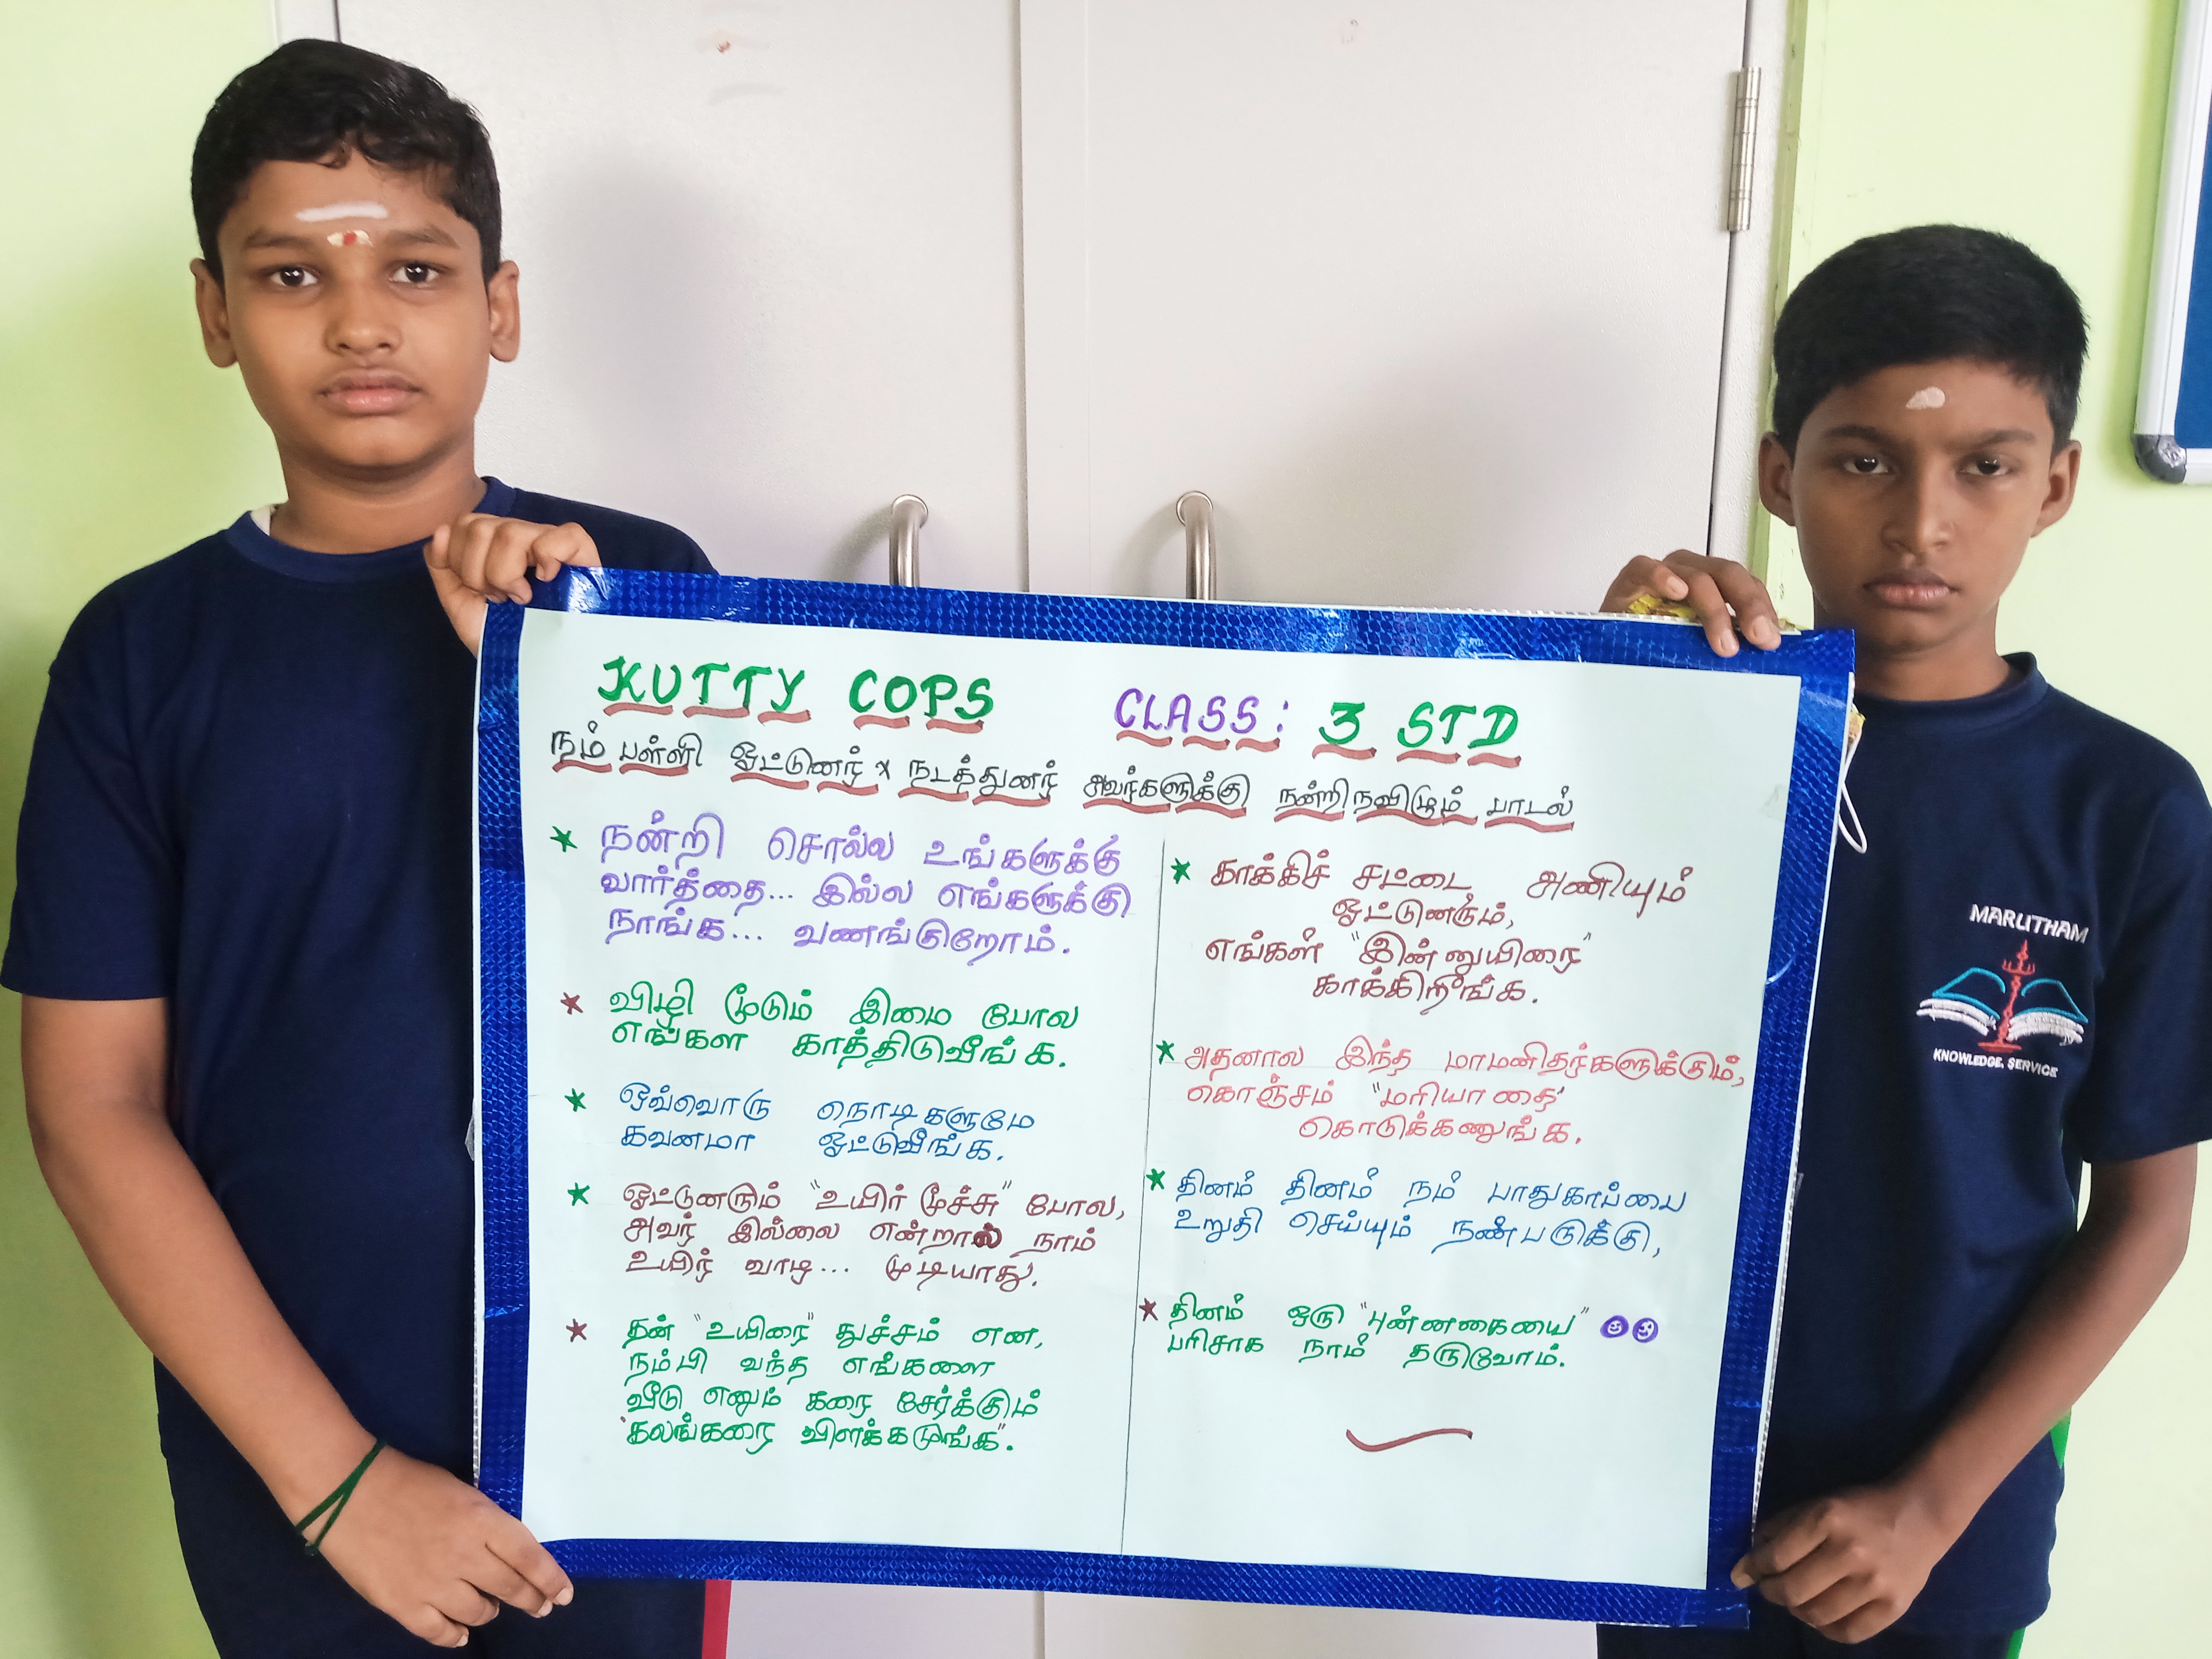 KUTTY COPS CLASS: 3 STD
நம் பள்ளி ஓட்டுனர் x நடத்துனர் அவர்களுக்கு நன்றிநவிழும் பாடல்
நன்றி சொல்ல உங்களுக்கு
வார்த்தை... இல்ல எங்களுக்கு
நாங்க... வணங்குறோம்.
விழி மூடும் இமை போல
எங்கள காத்திடுவீங்க.
ஒவ்வொரு நொடிகளுமே
கவனமா ஓட்டுவீங்க.
ஓட்டுனரும் "உயிர் மூச்சு" போல,
அவர் இல்லை என்றால் நாம்
உயிர் வாழ... முடியாது.
தன் "உயிரை" துச்சம் என,
நம்பி வந்த எங்களை
வீடு எனும் கரை சேர்க்கும்
"கலங்கரை விளக்கமுங்க".
காக்கிச் சட்டை அணியும்
ஓட்டுனரும்,
எங்கள் "இன்னுயிரை"
காக்கிறீங்க.
அதனால இந்த மாமனிதர்களுக்கும்,
கொஞ்சம் "மரியாதை"
கொடுக்கணுங்க.
தினம் தினம் நம் பாதுகாப்பை
உறுதி செய்யும் நண்பருக்கு,
தினம் ஒரு "புன்னகையை"
பரிசாக நாம் தருவோம்.
MARUTHAM
KNOWLEDGE, SERVICE